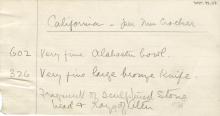 California - Mrs Crocker
602 Very fine Alabaster bowl.
326 Very fine large bronze Knife.
Fragment of sculptured stone
head &